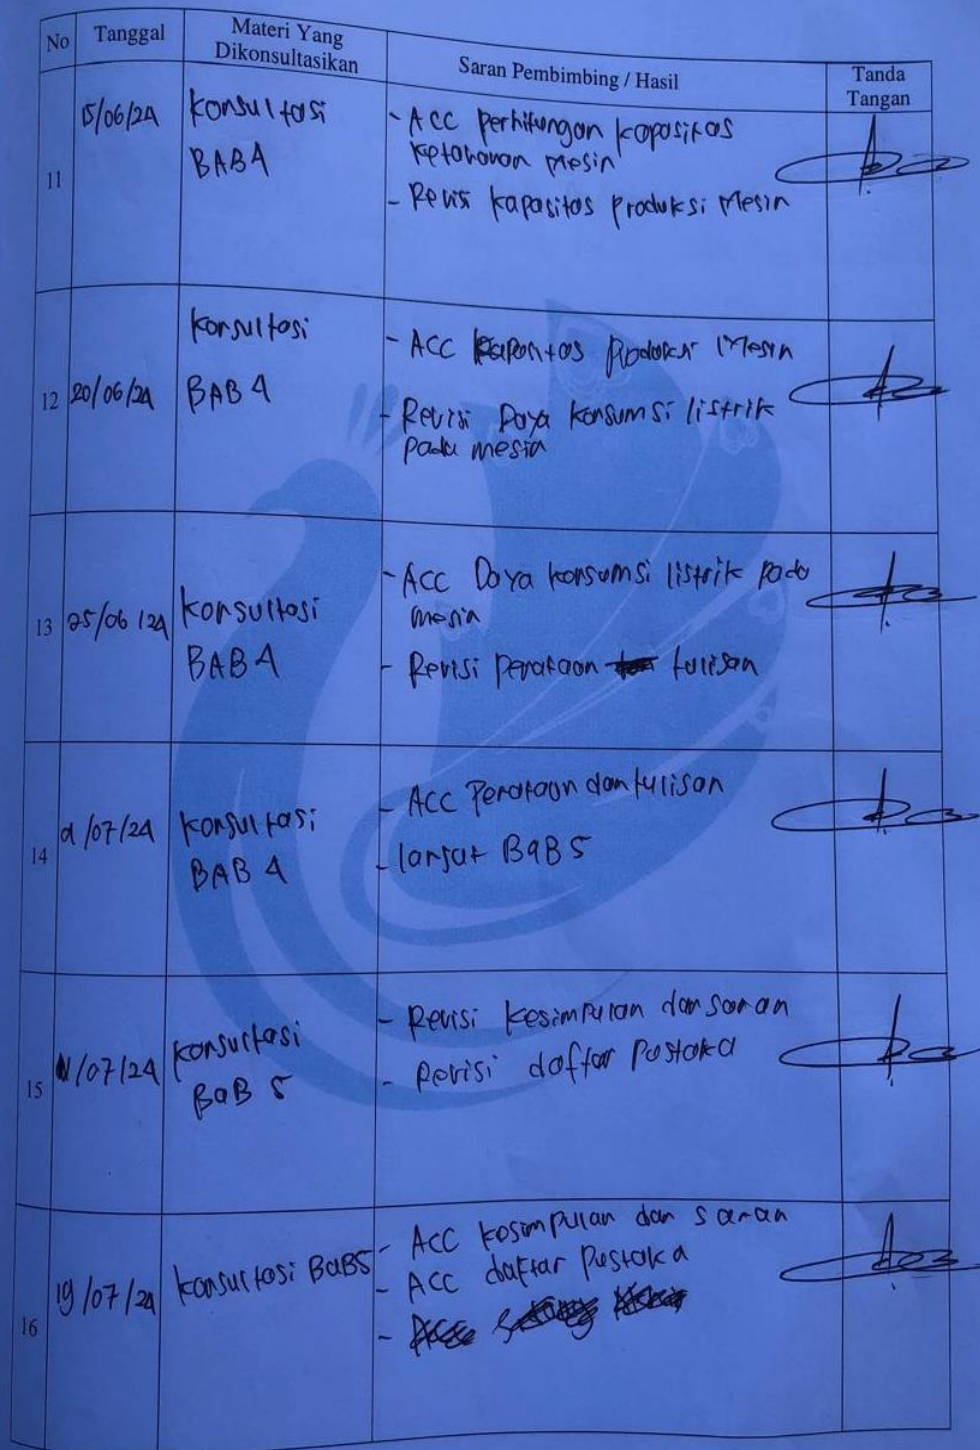 No Tanggal Materi Yang Dikonsultasikan Saran Pembimbing / Hasil Tanda Tangan
11 15/06/24 Konsultasi BAB 4
- ACC Perhitungan kapasitas
ketahanan Mesin
- Revisi kapasitas Produksi Mesin
12 20/06/24 Konsultasi BAB 4
- ACC kapasitas Produksi Mesin
- Revisi Daya konsumsi listrik
pada mesin
13 25/06/24 Konsultasi BAB 4
- ACC Daya konsumsi listrik pada
mesin
- Revisi perataan tulisan
14 /07/24 Konsultasi BAB 4
- ACC Perataan dan tulisan
- lanjut BaB 5
15 11/07/24 Konsultasi BaB 5
- Revisi kesimpulan dan saran
- Revisi daftar Pustaka
16 19/07/24 Konsultasi BaB5
- ACC kesimpulan dan saran
- ACC daftar Pustaka
-